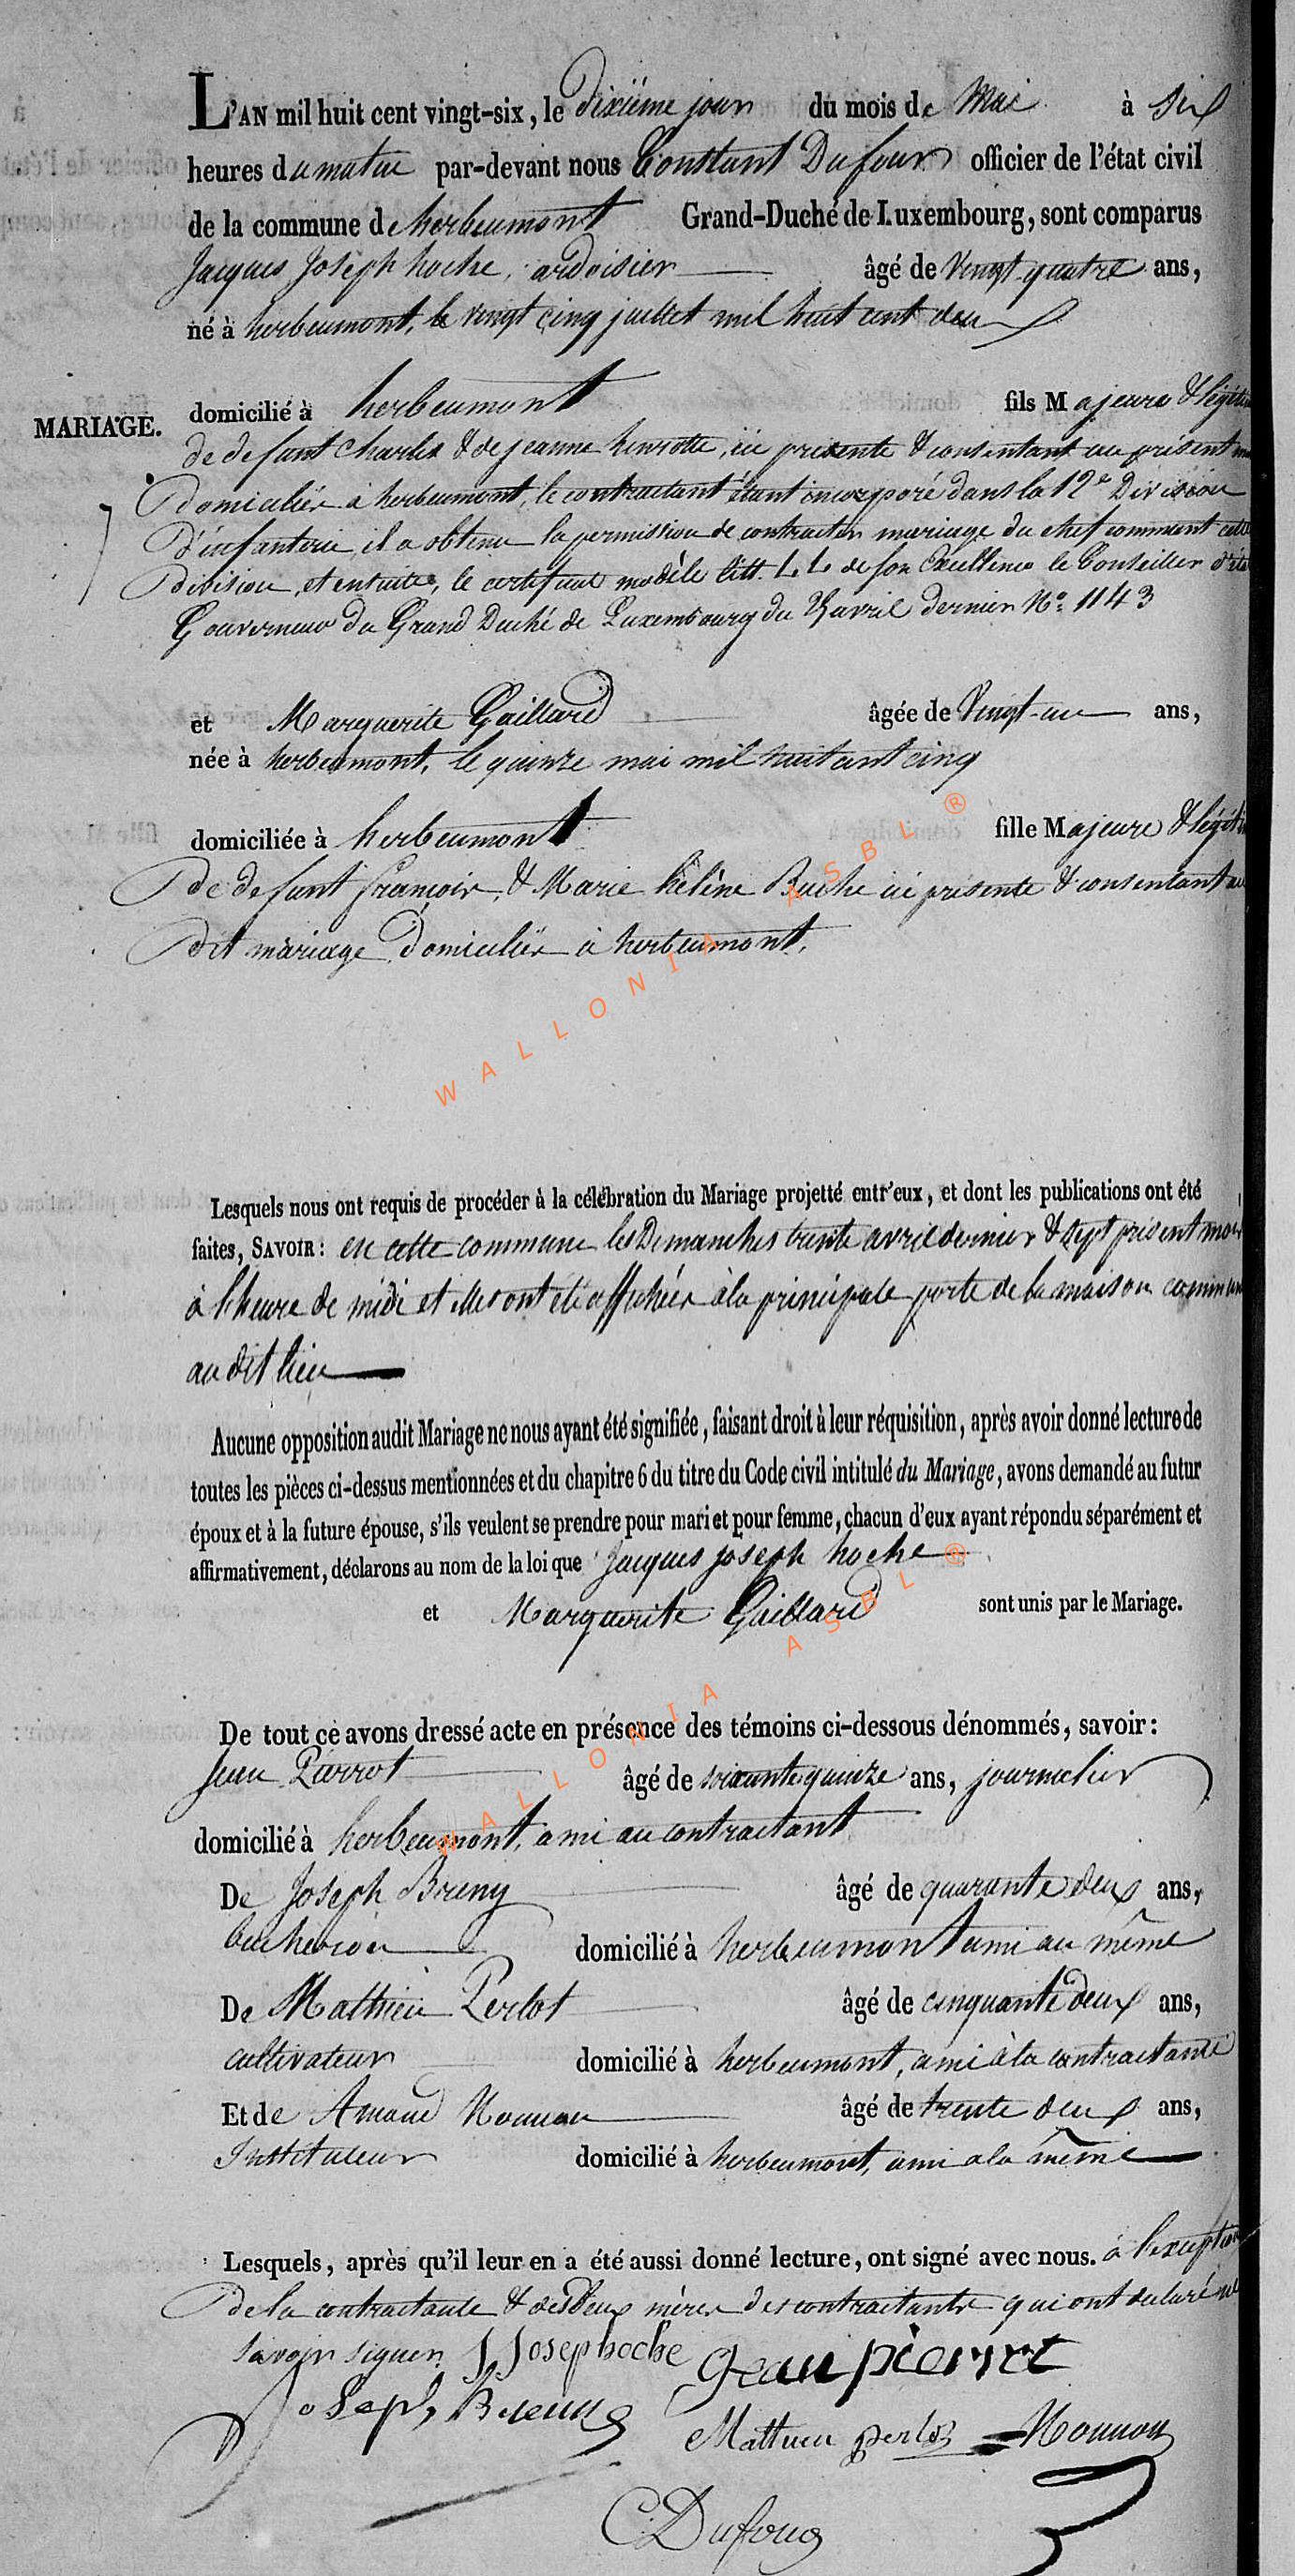 L'AN mil huit cent vingt-six, le dixiéme jour du mois de Mai à six
heures du matin par-devant nous Constant Dufour officier de l'état civil
de la commune d'herbeumont Grand-Duché de Luxembourg, sont comparus
Jacques Joseph hoche, ardoisier âgé de Vingt quatre ans,
né à herbeumont, le vingt cinq juillet mil huit cent deux
MARIAGE.
domicilié à herbeumont fils Majeure & légitim
de defunt Charles & de jeanne henrotte, ici présente & consentant au présent
Domiciliés à herbeumont, le contractant étant incorporé dans la 12e Division
D'infanterie, il a obtenu la permission de contracter mariage du chef commdant cette
division, et ensuite, le certificat modèle litt. L L de son Excellence le Conseiller d'état
Gouverneur du Grand Duché de Luxembourg du avril dernier No. 1143
et Marguerite Gaillard âgée de Vingt-un ans,
née à herbeumont, le quinze mai mil huit cent cinq
domiciliée à herbeumont fille Majeure & légitim
De defunt françois, & Marie hélène Buche ici présente & consentant au
dit mariage, Domiciliés à herbeumont.
Lesquels nous ont requis de procéder à la célébration du Mariage projetté entr'eux, et dont les publications ont été
faites, SAVOIR: en cette commune les Dimanches trente avril dernier & sept présent mois
à l'heure de midi et elles ont été affichées à la principale porte de la maison commune
au dit lieu
Aucune opposition audit Mariage ne nous ayant été signifiée, faisant droit à leur réquisition, après avoir donné lecture de
toutes les pièces ci-dessus mentionnées et du chapitre 6 du titre du Code civil intitulé du Mariage, avons demandé au futur
époux et à la future épouse, s'ils veulent se prendre pour mari et pour femme, chacun d'eux ayant répondu séparément et
affirmativement, déclarons au nom de la loi que Jacques Joseph hoche
et Marguerite Gaillard sont unis par le Mariage.
De tout ce avons dressé acte en présence des témoins ci-dessous dénommés, savoir:
Jean Pierrot âgé de soixante quinze ans, journalier
domicilié à herbeumont, ami au contractant
De Joseph Breny âgé de quarante deux ans,
bucheron domicilié à herbeumont ami au même
De Mathieu Perlot âgé de cinquante deux ans,
cultivateur domicilié à herbeumont, ami à la contractante
Et de Amand Nounon âgé de trente deux ans,
Instituteur domicilié à herbeumont, ami a la même
Lesquels, après qu'il leur en a été aussi donné lecture, ont signé avec nous. à l'exception
De la contractante & des Deux mères des contractants qui ont declaré ne
savoir signer. J Joseph hoche Jean pierrot
Joseph Breny
Mathieu perlot Nounon
C. Dufour
WALLONIA ASBL ®
WALLONIA ASBL ®